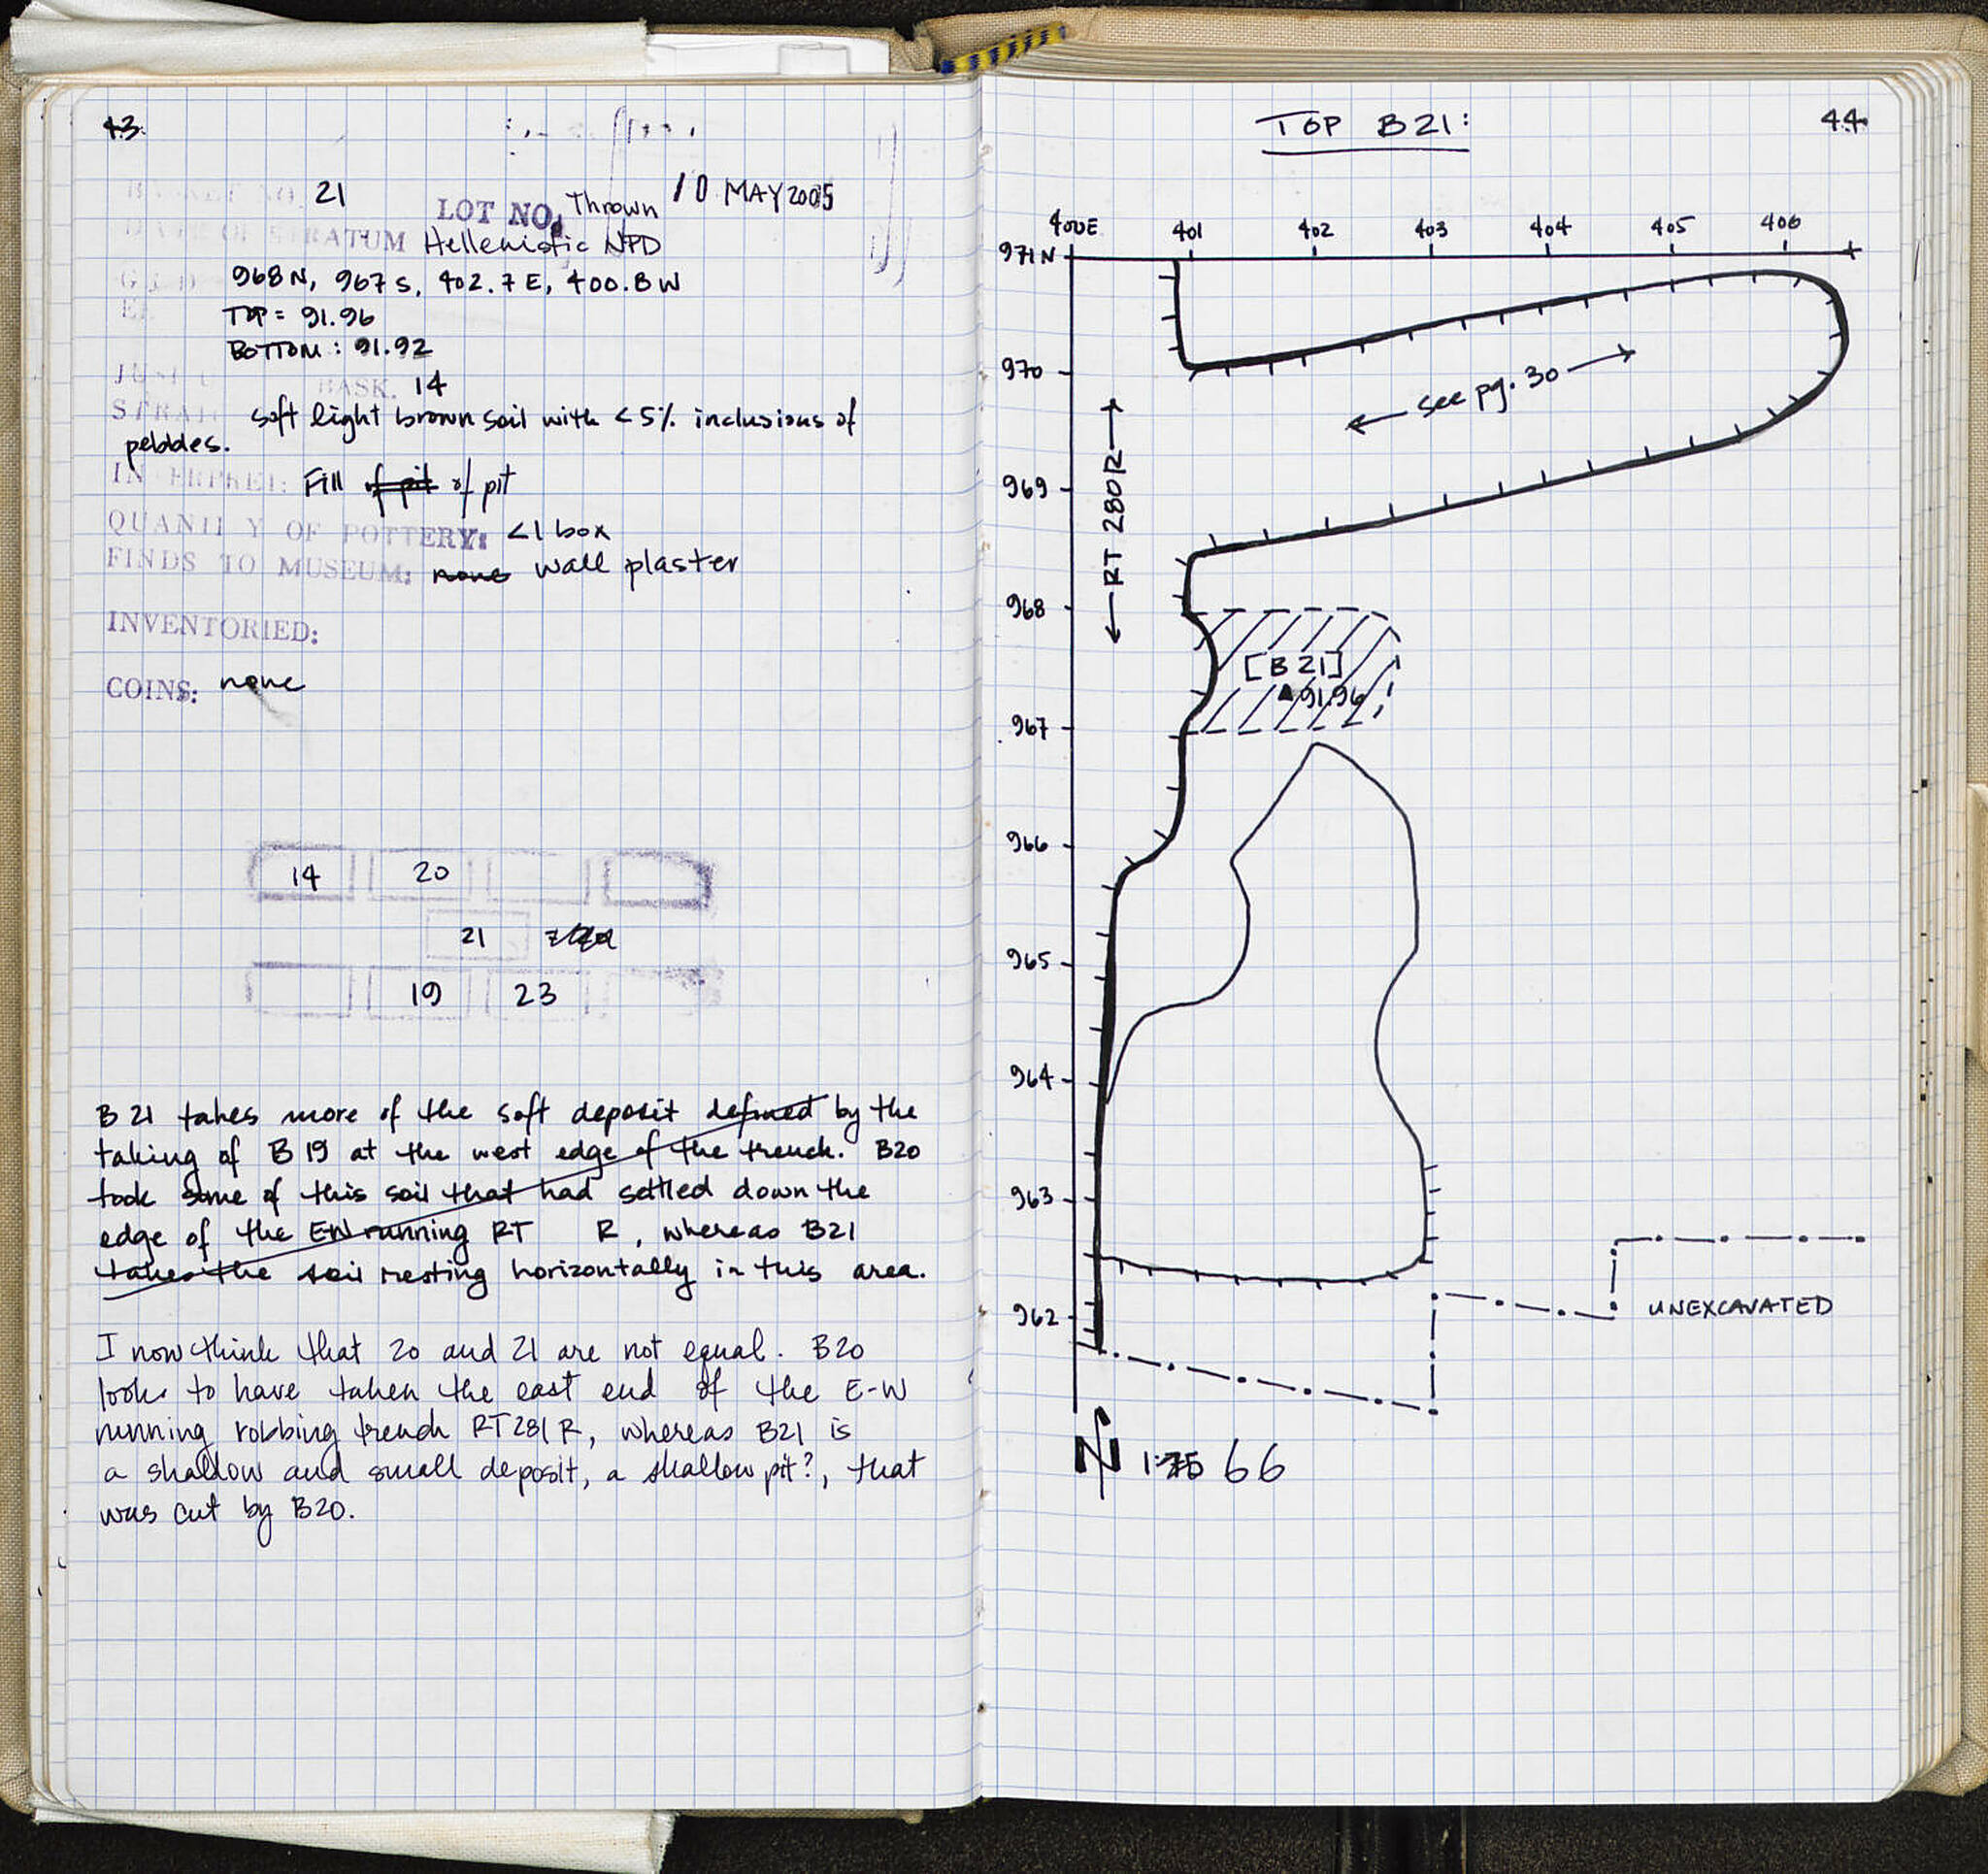 43
21
LOT NO. Thrown 10 MAY 2005
STRATUM Hellenistic NPD
968 N, 967 S, 402.7 E, 400.8 W
TOP = 91.96
BOTTOM : 91.92
BASK. 14
soft light brown soil with <5% inclusions of
pebbles.
Fill of pit of pit
QUANTITY OF POTTERY: <1 box
FINDS TO MUSEUM: none wall plaster
INVENTORIED:
COINS: none
14 20
21
19 23
B 21 takes more of the soft deposit defined by the
taking of B 19 at the west edge of the trench. B20
took some of this soil that had settled down the
edge of the EW running RT R, whereas B21
takes the soil resting horizontally in this area.
I now think that 20 and 21 are not equal. B20
looks to have taken the east end of the E-W
running robbing trench RT 281 R, whereas B21 is
a shallow and small deposit, a shallow pit?, that
was cut by B20.
TOP B21:
44
400E 401 402 403 404 405 406
971N
970
see pg. 30
969
RT 280R
968
[B 21]
91.96
967
966
965
964
963
962
UNEXCAVATED
N 1:75 66